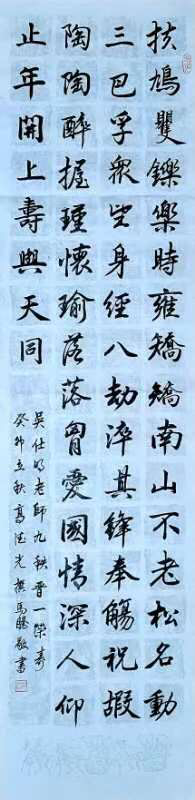 扶鳩矍鑠樂時雍矯矯南山不老松名動
三巴孚眾望身經八劫淬其鋒奉觴祝嘏
陶陶醉握瑾懷瑜落落胷愛國情深人仰
止年開上壽與天同
吳仕明老師九秩晉一榮壽
癸卯立秋高光撰馬騰敬書